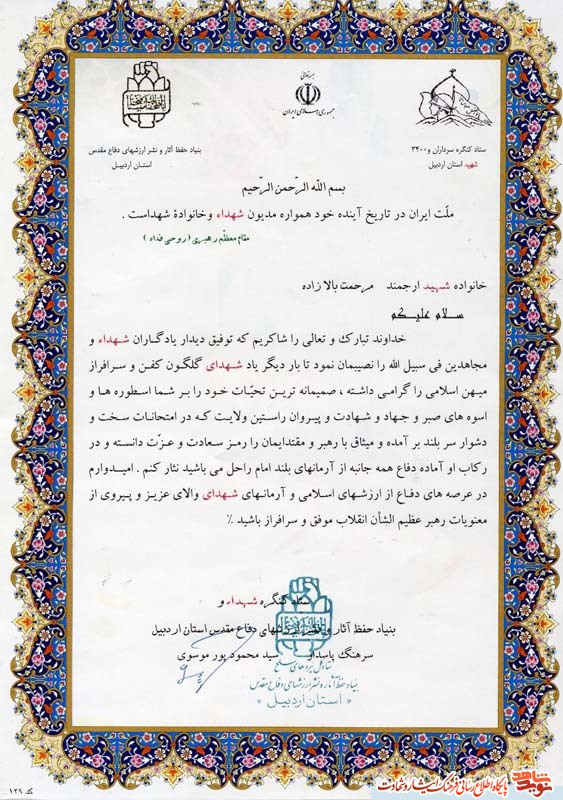 بسمه تعالی
جمهوری اسلامی ایران
ستاد کنگره سرداران و ۳۴۰۰
شهید استان اردبیل
بنیاد حفظ آثار و نشر ارزشهای دفاع مقدس
استان اردبیل
بسم الله الرّحمن الرّحیم
ملّت ایران در تاریخ آینده خود همواره مدیون شهداء و خانوادهٔ شهداست .
مقام معظّم رهبری ( روحی فداه )
خانواده شهید ارجمند مرحمت بالازاده
سلام علیکم
خداوند تبارک و تعالی را شاکریم که توفیق دیدار یادگاران شهداء و
مجاهدین فی سبیل الله را نصیبمان نمود تا بار دیگر یاد شهدای گلگون کفن و سرافراز
میهن اسلامی را گرامی داشته ، صمیمانه ترین تحیّات خود را بر شما اسطوره ها و
اسوه های صبر و جهاد و شهادت و پیروان راستین ولایت که در امتحانات سخت و
دشوار سر بلند بر آمده و میثاق با رهبر و مقتدایمان را رمز سعادت و عزّت دانسته و در
رکاب او آماده دفاع همه جانبه از آرمانهای بلند امام راحل می باشید نثار کنم . امیدوارم
در عرصه های دفاع از ارزشهای اسلامی و آرمانهای شهدای والای عزیز و پیروی از
معنویات رهبر عظیم الشأن انقلاب موفق و سرافراز باشید ٪
ستاد کنگره شهداء و
بنیاد حفظ آثار و نشر ارزشهای دفاع مقدس استان اردبیل
سرهنگ پاسدار سید محمود پور موسوی
ستاد کل نیروهای مسلح
بنیاد حفظ آثار و نشر ارزشهای دفاع مقدس
« استان اردبیل »
کد ۱۲۹
پایگاه اطلاع رسانی فرهنگ ایثار و شهادت
نوید شاهد